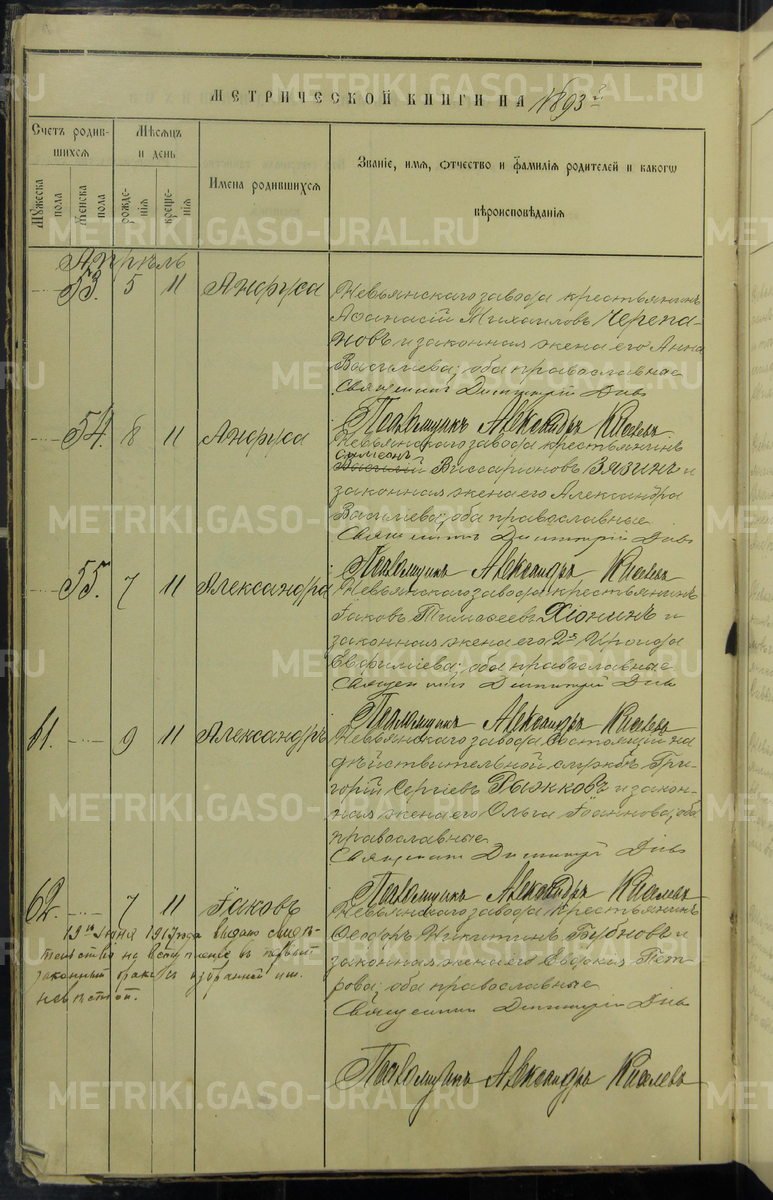 МЕТРИЧЕСКОЙ КНИГИ НА 1893й
Счетъ родив-
шихся
Мѣсяцъ
и день
Имена родившихся
Званіе, имя, отчество и фамилія родителей и какого
вѣроисповѣданія
Мужеска пола
Женска пола
рожде-
нія
креще-
нія
Апрѣль
53. 5 11 Анфуса
Невьянскаго завода крестьянинъ
Афанасій Михаиловъ Черепа-
новъ и законная жена его Анна
Василиева; оба православные
Священник Димитрій
Псаломщикъ Александръ Киселевъ
54. 8 11 Анфуса
Невьянскаго завода крестьянинъ
Симеонъ
Василій Виссарионовъ Зязинъ и
законная жена его Александра
Василиева; оба православные
Священник Димитрій
Псаломщикъ Александръ Киселевъ
55. 7 11 Александра
Невьянскаго завода крестьянинъ
Іаковъ Тимофеевъ Хіонинъ и
законная жена его 2я Ираида
Евфиміева; оба православные
Священник Димитрій
Псаломщикъ Александръ Киселевъ
61. 9 11 Александръ
Невьянскаго завода состоящій на
дѣйствительной службѣ Гри-
горій Сергіевъ Рыжковъ и закон-
ная жена его Ольга Іоаннова; оба
православные
Священник Димитрій
Псаломщикъ Александръ Киселевъ
62. 7 11 Іаковъ
Невьянскаго завода крестьянинъ
Феодоръ Никитинъ Бубновъ и
законная жена его Евдокия Пет-
рова; оба православные
Священник Димитрій
Псаломщикъ Александръ Киселевъ
19го Іюня 1917 года выдано свидѣ-
тельство на вступленіе въ первый
законный бракъ съ избранной им
невѣстой.
METRIKI.GASO-URAL.RU